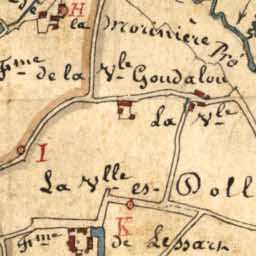 H
la Morinière
fme de la Vle Goudalou
La Vle
I
La Ville es Doll
K
fme de Lessart